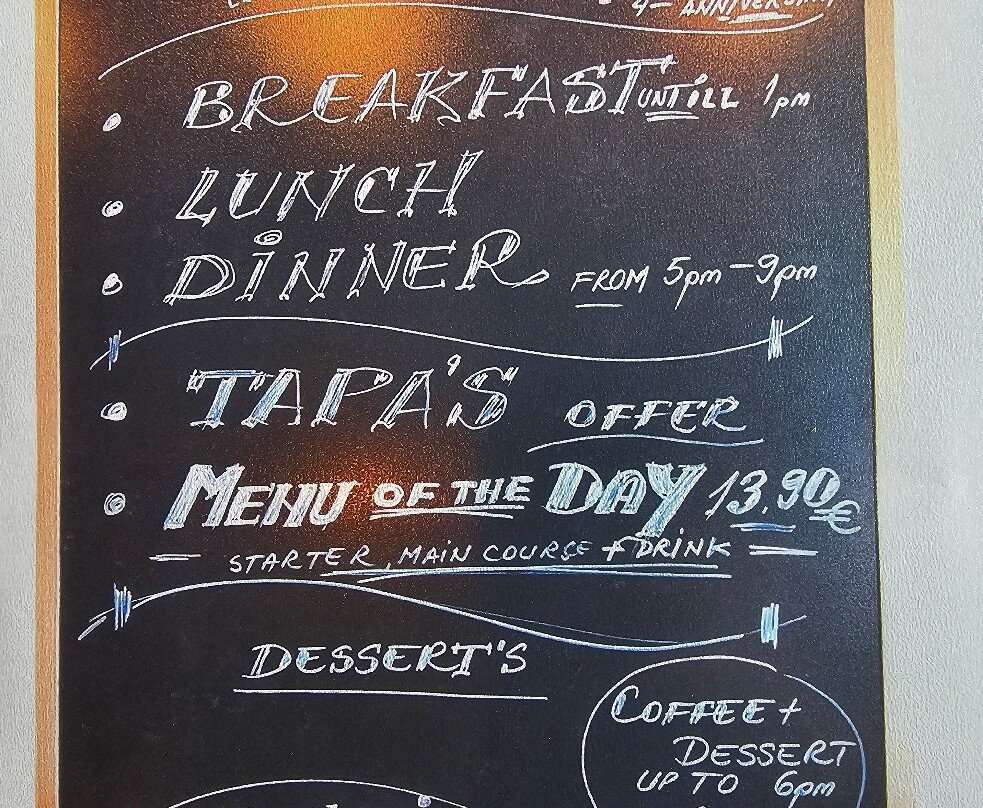 4TH ANNIVERSARY
BREAKFAST UNTILL 1pm
LUNCH
DINNER FROM 5pm-9pm
TAPA'S OFFER
MENU OF THE DAY 13.90€
STARTER, MAIN COURSE + DRINK
DESSERT'S
COFFEE +
DESSERT
UP TO 6pm